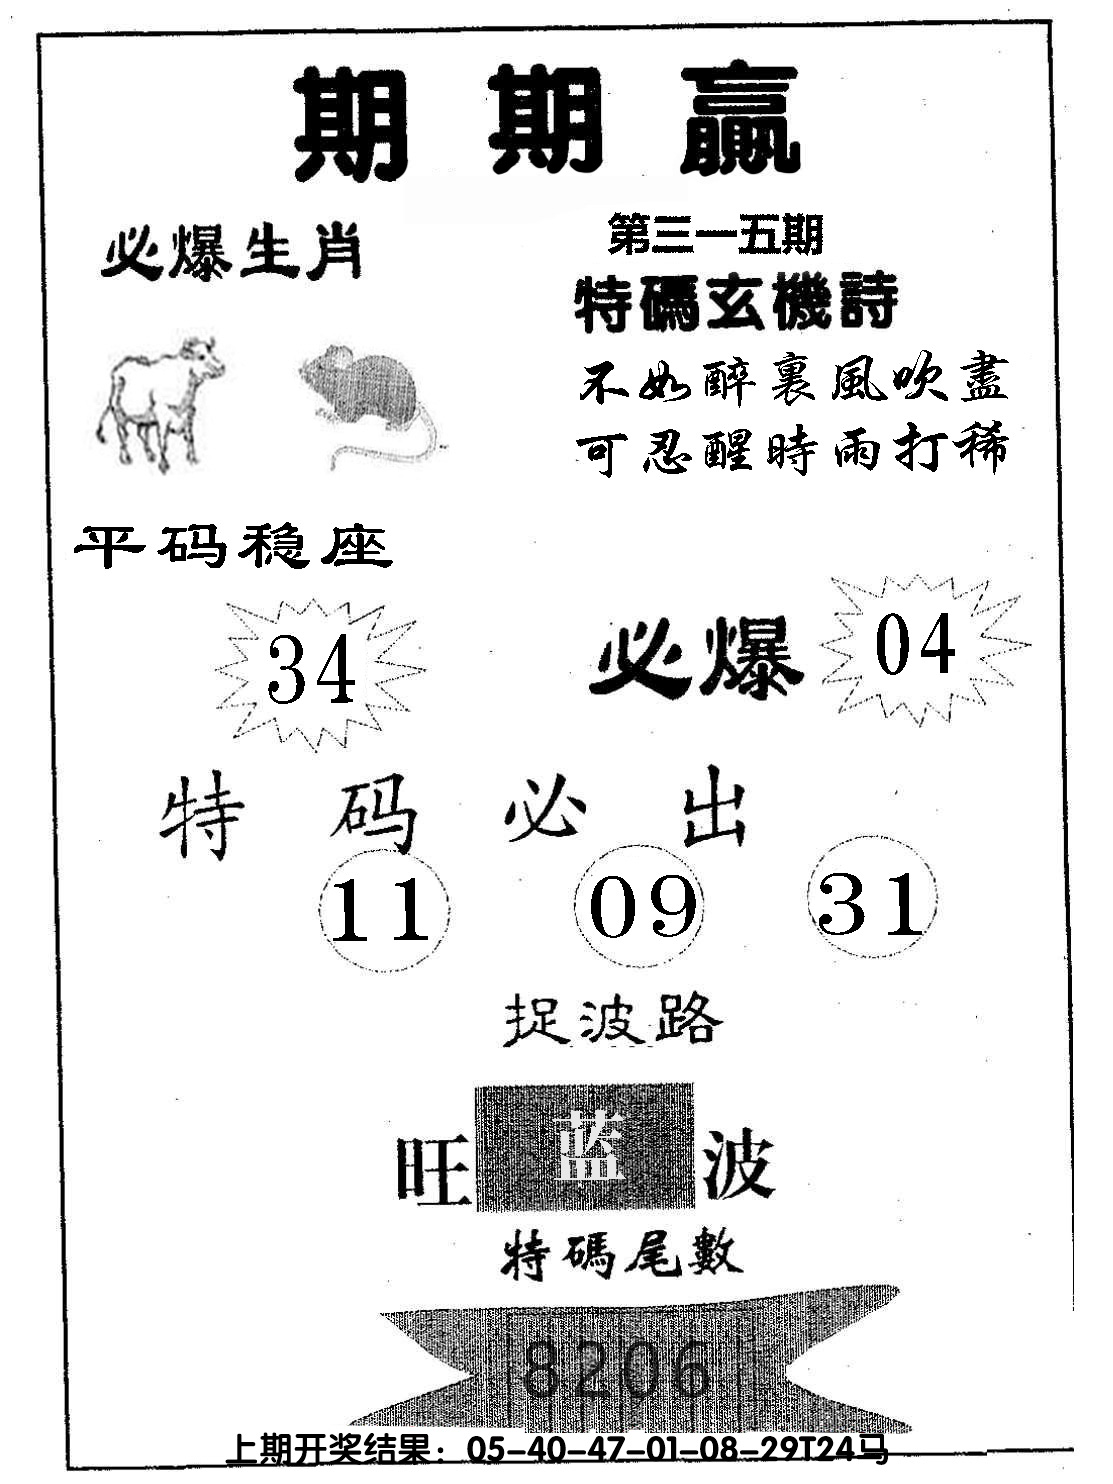 期期赢
必爆生肖
第三一五期
特碼玄機詩
不如醉裏風吹盡
可忍醒時雨打稀
平码稳座
34
必爆 04
特码必出
11 09 31
捉波路
旺 蓝 波
特碼尾數
8206
上期开奖结果：05-40-47-01-08-29T24马